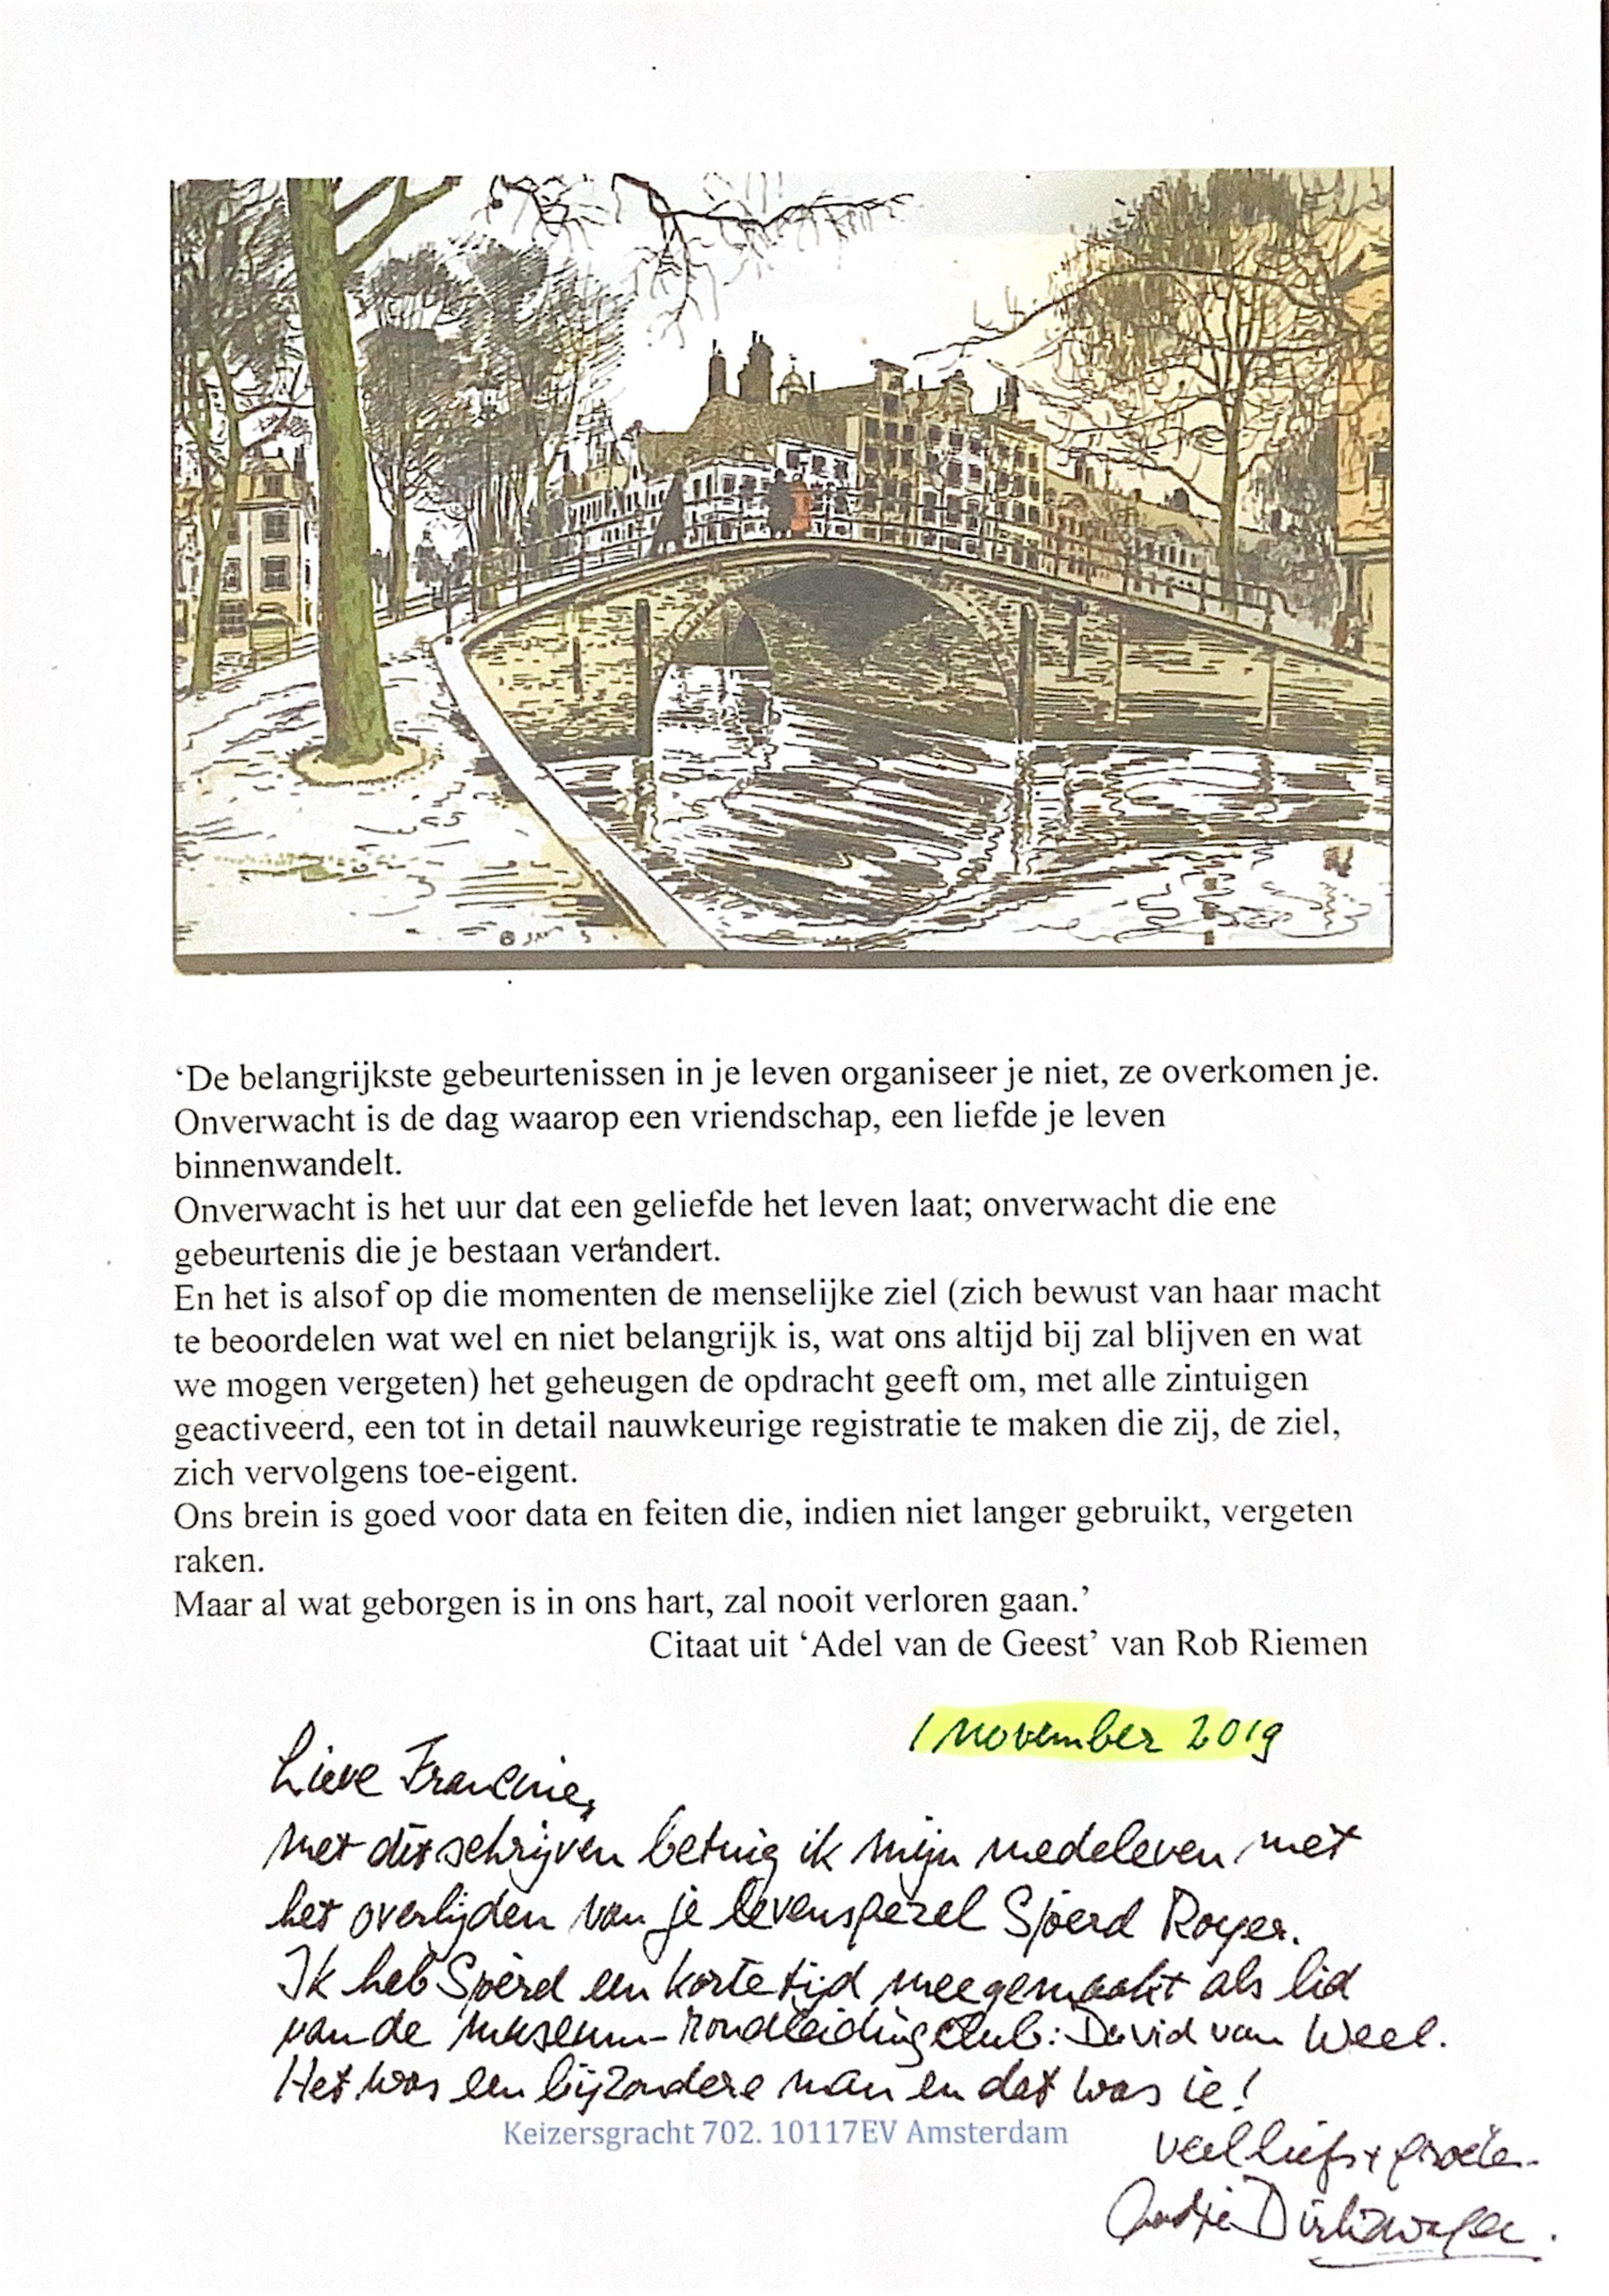 ‘De belangrijkste gebeurtenissen in je leven organiseer je niet, ze overkomen je.
Onverwacht is de dag waarop een vriendschap, een liefde je leven
binnenwandelt.
Onverwacht is het uur dat een geliefde het leven laat; onverwacht die ene
gebeurtenis die je bestaan verandert.
En het is alsof op die momenten de menselijke ziel (zich bewust van haar macht
te beoordelen wat wel en niet belangrijk is, wat ons altijd bij zal blijven en wat
we mogen vergeten) het geheugen de opdracht geeft om, met alle zintuigen
geactiveerd, een tot in detail nauwkeurige registratie te maken die zij, de ziel,
zich vervolgens toe-eigent.
Ons brein is goed voor data en feiten die, indien niet langer gebruikt, vergeten
raken.
Maar al wat geborgen is in ons hart, zal nooit verloren gaan.’
Citaat uit ‘Adel van de Geest’ van Rob Riemen
1 november 2019
Lieve Francine,
met dit schrijven betuig ik mijn medeleven met
het overlijden van je levensgezel Sjoerd Royer.
Ik heb Sjoerd een korte tijd meegemaakt als lid
van de museum-rondleiding club: David van Weel.
Het was een bijzondere man en dat was ie!
Keizersgracht 702. 10117EV Amsterdam
veel liefs + groeten